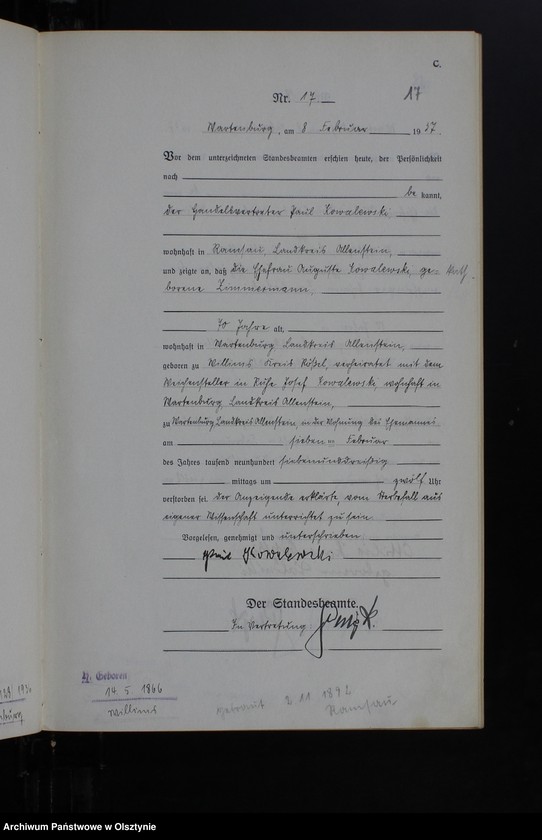 C.
Nr. 17
17
Wartenburg, am 8 Februar 1937.
Vor dem unterzeichneten Standesbeamten erschien heute, der Persönlichkeit
nach
be kannt,
der Handelsvertreter Paul Kowalewski
wohnhaft in Ramsau, Landkreis Allenstein,
und zeigte an, daß die Ehefrau Auguste Kowalewski ge-
borene Zimmermann,
70 Jahre alt,
wohnhaft in Wartenburg Landkreis Allenstein,
geboren zu Willims Kreis Rößel, verheiratet mit dem
Weichensteller in Ruhe Josef Kowalewski, wohnhaft in
Wartenburg, Landkreis Allenstein,
zu Wartenburg Landkreis Allenstein, in der Wohnung des Ehemannes
am sieben ten Februar
des Jahres tausend neunhundert siebenunddreißig
mittags um zwölf Uhr
verstorben sei. Der Anzeigende erklärte, vom Sterbefall aus
eigener Wissenschaft unterrichtet zu sein.
Vorgelesen, genehmigt und unterschrieben
Paul Kowalewski
Der Standesbeamte.
In Vertretung:
Geboren
14 5 1866
Willims
Getraut 2 11 1892
Ramsau
Archiwum Państwowe w Olsztynie